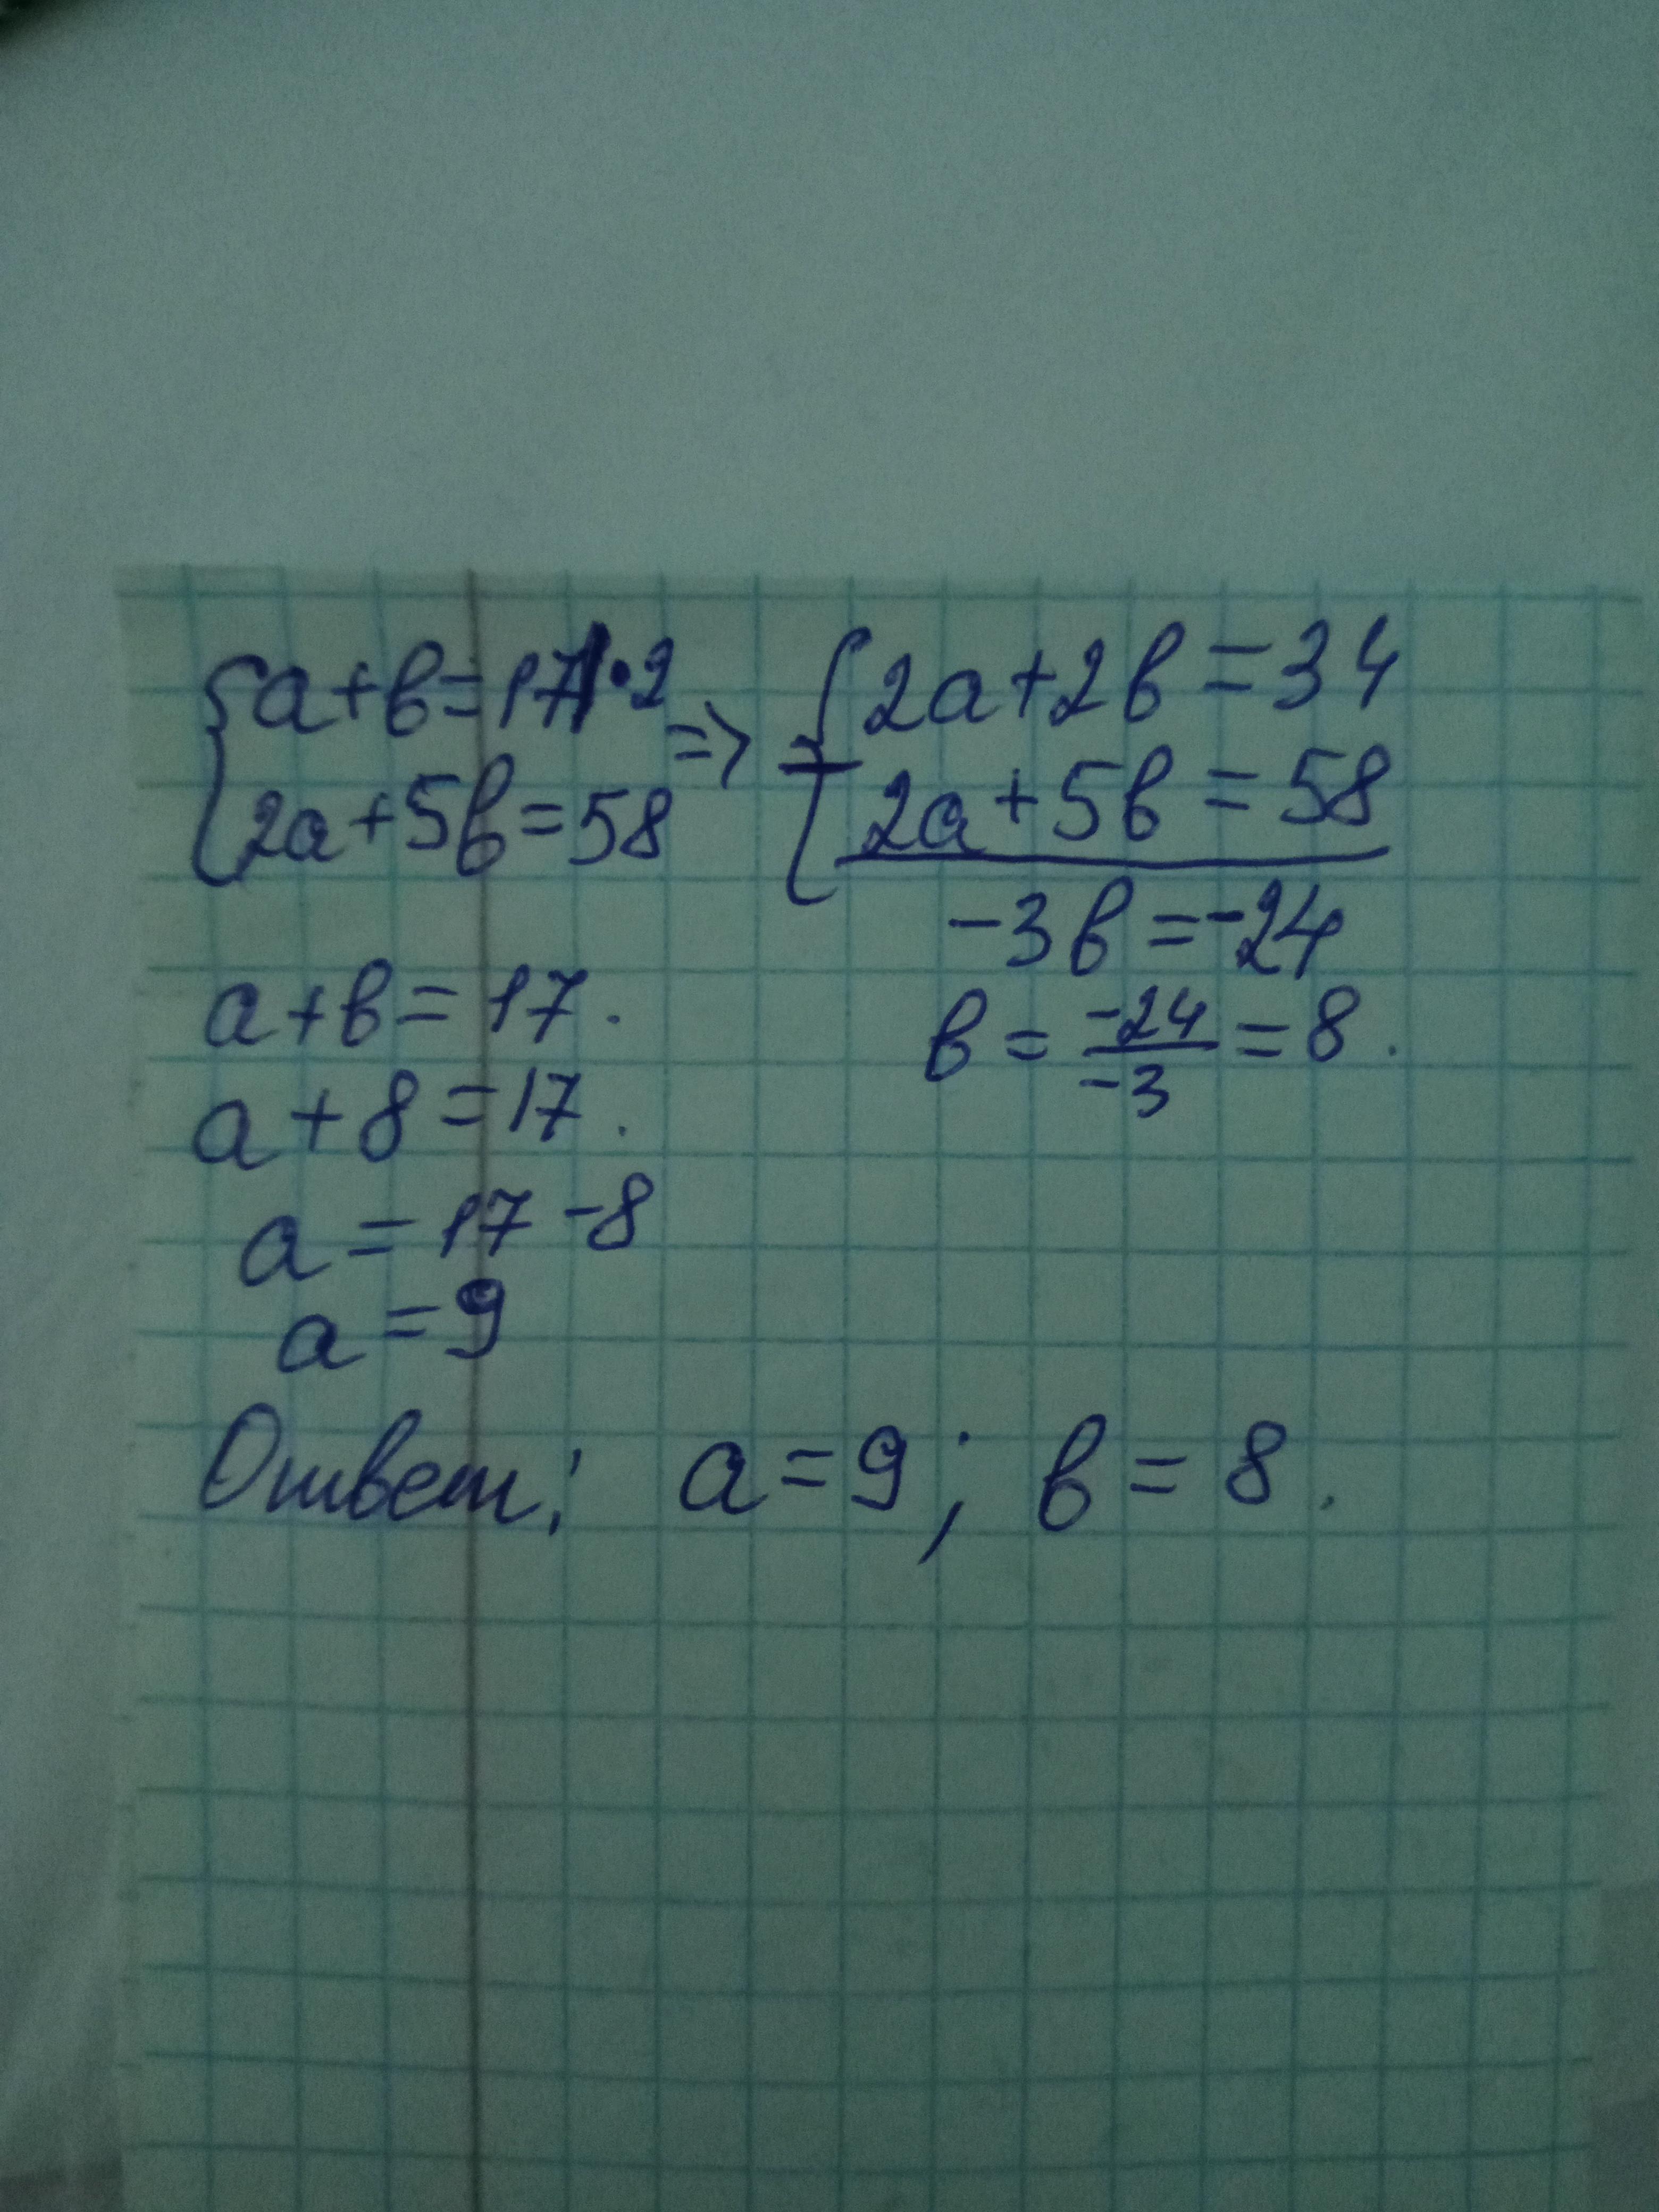 { a+в=17 |·2
2a+5в=58 =>
{ 2a+2в=34
− 2a+5в=58
-3в=-24
в = -24/-3 = 8.
a+в=17.
a+8=17.
a=17-8
a=9
Ответ: a=9; в=8.